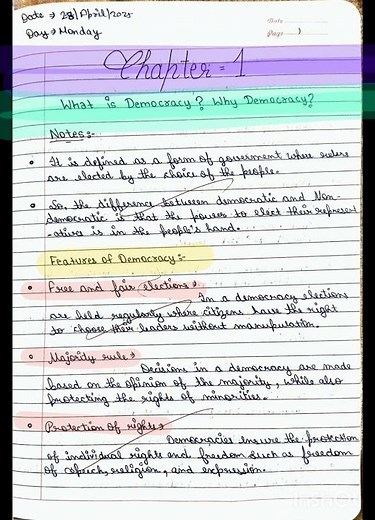 Date → 28/April/2025
Day → Monday
Date
Page
Chapter - 1
What is Democracy? Why Democracy?
Notes:-
• It is defined as a form of government where rulers
are elected by the choice of the people.
• So, the difference between democratic and Non-
democratic is that the powers to elect their represent
-atives is in the people's hand.
Features of Democracy:-
• Free and fair elections →
In a democracy elections
are held regularly where citizens have the right
to choose their leaders without manipulation.
• Majority rule →
Decisions in a democracy are made
based on the opinion of the majority, while also
protecting the rights of minorities.
• Protection of rights →
Democracies ensure the protection
of individual rights and freedom such as freedom
of speech, religion, and expression.